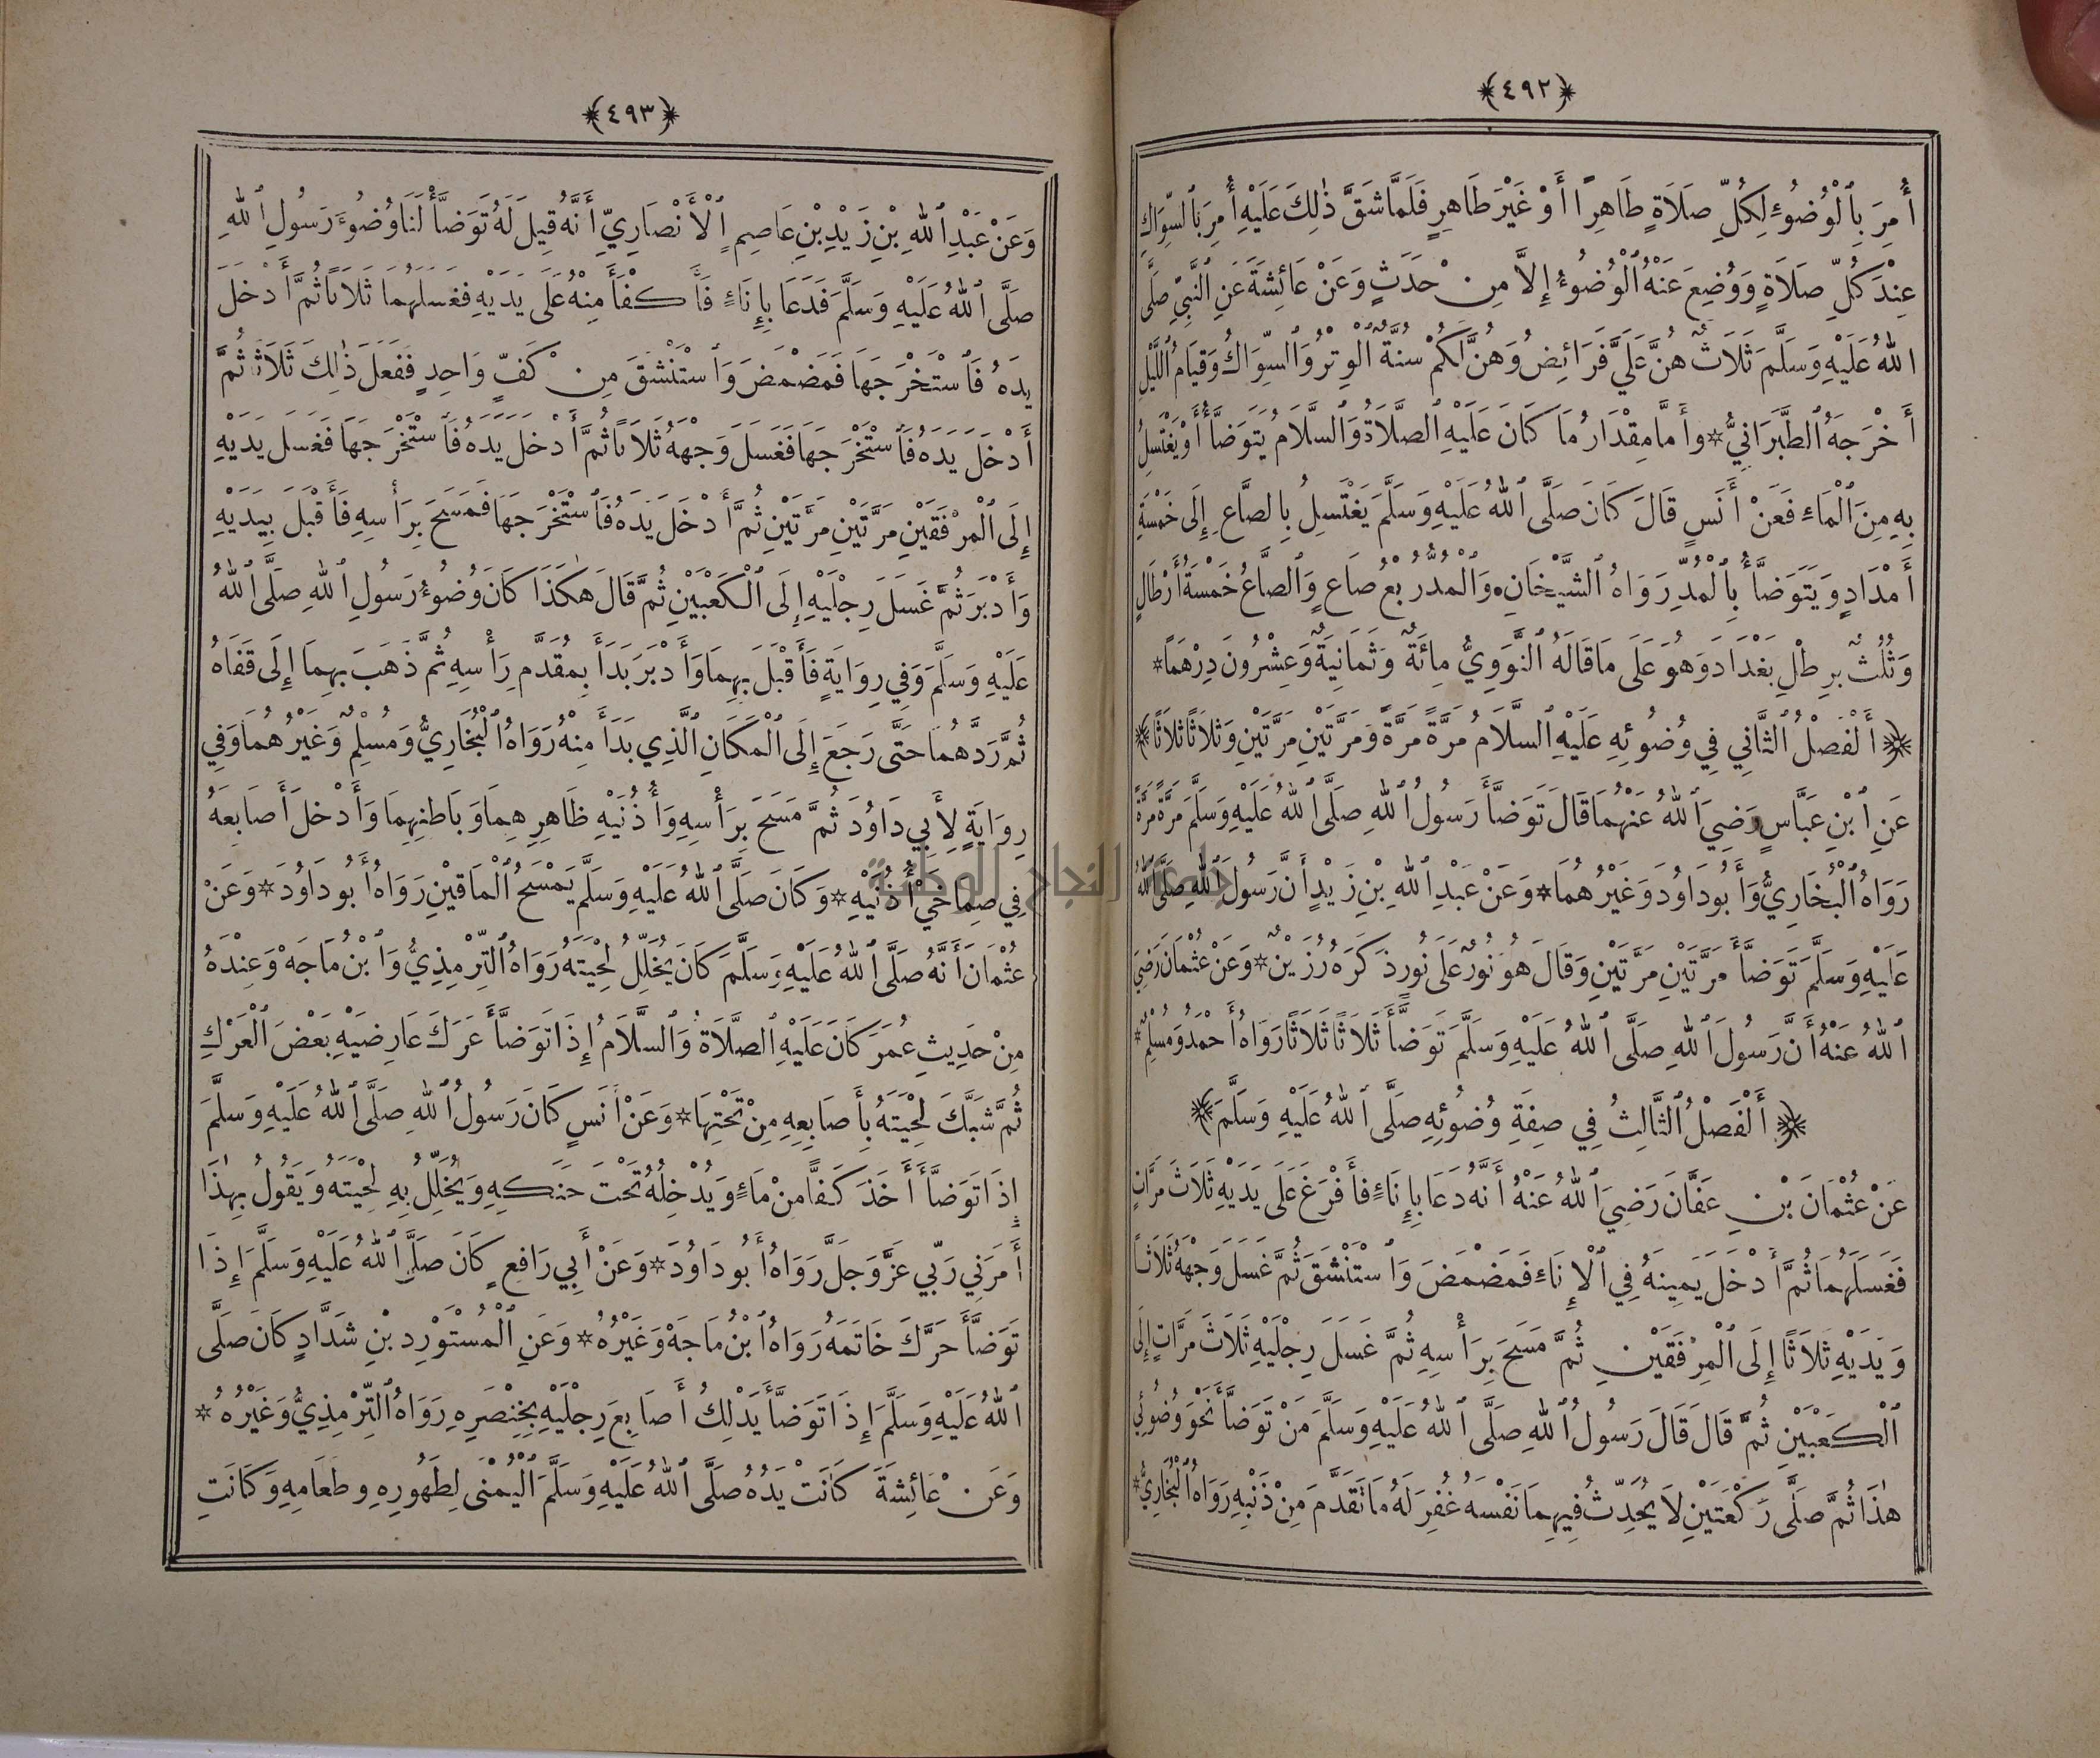 ﴿٤٩٢﴾
أُمِرَ بِٱلْوُضُوءِ لِكُلِّ صَلَاةٍ طَاهِرًا أَوْ غَيْرَ طَاهِرٍ فَلَمَّا شَقَّ ذٰلِكَ عَلَيْهِ أُمِرَ بِٱلسِّوَاكِ
عِنْدَ كُلِّ صَلَاةٍ وَوُضِعَ عَنْهُ ٱلْوُضُوءُ إِلَّا مِنْ حَدَثٍ وَعَنْ عَائِشَةَ عَنِ ٱلنَّبِيِّ صَلَّى
ٱللهُ عَلَيْهِ وَسَلَّمَ ثَلَاثٌ هُنَّ عَلَيَّ فَرَائِضُ وَهُنَّ لَكُمْ سُنَّةٌ ٱلْوِتْرُ وَٱلسِّوَاكُ وَقِيَامُ ٱللَّيْلِ
أَخْرَجَهُ ٱلطَّبَرَانِيُّ * وأَمَّا مِقْدَارُ مَا كَانَ عَلَيْهِ ٱلصَّلَاةُ وَٱلسَّلَامُ يَتَوَضَّأُ أَوْ يَغْتَسِلُ
بِهِ مِنَ ٱلْمَاءِ فَعَنْ أَنَسٍ قَالَ كَانَ صَلَّى ٱللهُ عَلَيْهِ وَسَلَّمَ يَغْتَسِلُ بِالصَّاعِ إِلَى خَمْسَةِ
أَمْدَادٍ وَيَتَوَضَّأُ بِٱلْمُدِّ رَوَاهُ ٱلشَّيْخَانِ . وَٱلْمُدُّ رُبْعُ صَاعٍ وَٱلصَّاعُ خَمْسَةُ أَرْطَالٍ
وَثُلُثٌ بِرِطْلِ بَغْدَادَ وَهُوَ عَلَى مَا قَالَهُ ٱلنَّوَوِيُّ مِائَةٌ وَثَمَانِيَةٌ وَعِشْرُونَ دِرْهَمًا *
﴿ أَلْفَصْلُ ٱلثَّانِي فِي وُضُوئِهِ عَلَيْهِ ٱلسَّلَامُ مَرَّةً مَرَّةً وَمَرَّتَيْنِ مَرَّتَيْنِ وَثَلَاثًا ثَلَاثًا ﴾
عَنِ ٱبْنِ عَبَّاسٍ رَضِيَ ٱللهُ عَنْهُمَا قَالَ تَوَضَّأَ رَسُولُ ٱللهِ صَلَّى ٱللهُ عَلَيْهِ وَسَلَّمَ مَرَّةً مَرَّةً
رَوَاهُ ٱلْبُخَارِيُّ وَأَبُو دَاوُدَ وَغَيْرُهُمَا * وَعَنْ عَبْدِ ٱللهِ بْنِ زَيْدٍ أَنَّ رَسُولَ ٱللهِ صَلَّى ٱللهُ
عَلَيْهِ وَسَلَّمَ تَوَضَّأَ مَرَّتَيْنِ مَرَّتَيْنِ وَقَالَ هُوَ نُورٌ عَلَى نُورٍ ذَكَرَهُ رُزَيْنٌ * وَعَنْ عُثْمَانَ رَضِيَ
ٱللهُ عَنْهُ أَنَّ رَسُولَ ٱللهِ صَلَّى ٱللهُ عَلَيْهِ وَسَلَّمَ تَوَضَّأَ ثَلَاثًا ثَلَاثًا رَوَاهُ أَحْمَدُ وَمُسْلِمٌ *
﴿ أَلْفَصْلُ ٱلثَّالِثُ فِي صِفَةِ وُضُوئِهِ صَلَّى ٱللهُ عَلَيْهِ وَسَلَّمَ ﴾
عَنْ عُثْمَانَ بْنِ عَفَّانَ رَضِيَ ٱللهُ عَنْهُ أَنَّهُ دَعَا بِإِنَاءٍ فَأَفْرَغَ عَلَى يَدَيْهِ ثَلَاثَ مَرَّاتٍ
فَغَسَلَهُمَا ثُمَّ أَدْخَلَ يَمِينَهُ فِي ٱلْإِنَاءِ فَمَضْمَضَ وَٱسْتَنْشَقَ ثُمَّ غَسَلَ وَجْهَهُ ثَلَاثًا
وَيَدَيْهِ ثَلَاثًا إِلَى ٱلْمِرْفَقَيْنِ ثُمَّ مَسَحَ بِرَأْسِهِ ثُمَّ غَسَلَ رِجْلَيْهِ ثَلَاثَ مَرَّاتٍ إِلَى
ٱلْكَعْبَيْنِ ثُمَّ قَالَ قَالَ رَسُولُ ٱللهِ صَلَّى ٱللهُ عَلَيْهِ وَسَلَّمَ مَنْ تَوَضَّأَ نَحْوَ وُضُوئِي
هٰذَا ثُمَّ صَلَّى رَكْعَتَيْنِ لَا يُحَدِّثُ فِيهِمَا نَفْسَهُ غُفِرَ لَهُ مَا تَقَدَّمَ مِنْ ذَنْبِهِ رَوَاهُ ٱلْبُخَارِيُّ *
﴿٤٩٣﴾
وَعَنْ عَبْدِ ٱللهِ بْنِ زَيْدِ بْنِ عَاصِمٍ ٱلْأَنْصَارِيِّ أَنَّهُ قِيلَ لَهُ تَوَضَّأْ لَنَا وُضُوءَ رَسُولِ ٱللهِ
صَلَّى ٱللهُ عَلَيْهِ وَسَلَّمَ فَدَعَا بِإِنَاءٍ فَأَكْفَأَ مِنْهُ عَلَى يَدَيْهِ فَغَسَلَهُمَا ثَلَاثًا ثُمَّ أَدْخَلَ
يَدَهُ فَٱسْتَخْرَجَهَا فَمَضْمَضَ وَٱسْتَنْشَقَ مِنْ كَفٍّ وَاحِدٍ فَفَعَلَ ذٰلِكَ ثَلَاثًا ثُمَّ
أَدْخَلَ يَدَهُ فَٱسْتَخْرَجَهَا فَغَسَلَ وَجْهَهُ ثَلَاثًا ثُمَّ أَدْخَلَ يَدَهُ فَٱسْتَخْرَجَهَا فَغَسَلَ يَدَيْهِ
إِلَى ٱلْمِرْفَقَيْنِ مَرَّتَيْنِ مَرَّتَيْنِ ثُمَّ أَدْخَلَ يَدَهُ فَٱسْتَخْرَجَهَا فَمَسَحَ بِرَأْسِهِ فَأَقْبَلَ بِيَدَيْهِ
وَأَدْبَرَ ثُمَّ غَسَلَ رِجْلَيْهِ إِلَى ٱلْكَعْبَيْنِ ثُمَّ قَالَ هٰكَذَا كَانَ وُضُوءُ رَسُولِ ٱللهِ صَلَّى ٱللهُ
عَلَيْهِ وَسَلَّمَ وَفِي رِوَايَةٍ فَأَقْبَلَ بِهِمَا وَأَدْبَرَ بَدَأَ بِمُقَدَّمِ رَأْسِهِ ثُمَّ ذَهَبَ بِهِمَا إِلَى قَفَاهُ
ثُمَّ رَدَّهُمَا حَتَّى رَجَعَ إِلَى ٱلْمَكَانِ ٱلَّذِي بَدَأَ مِنْهُ رَوَاهُ ٱلْبُخَارِيُّ وَمُسْلِمٌ وَغَيْرُهُمَا وَفِي
رِوَايَةٍ لِأَبِي دَاوُدَ ثُمَّ مَسَحَ بِرَأْسِهِ وَأُذُنَيْهِ ظَاهِرِهِمَا وَبَاطِنِهِمَا وَأَدْخَلَ أَصَابِعَهُ
فِي صِمَاخَيْ أُذُنَيْهِ * وَكَانَ صَلَّى ٱللهُ عَلَيْهِ وَسَلَّمَ يَمْسَحُ ٱلْمَاقِيْنِ رَوَاهُ أَبُو دَاوُدَ * وَعَنْ
عُثْمَانَ أَنَّهُ صَلَّى ٱللهُ عَلَيْهِ وَسَلَّمَ كَانَ يُخَلِّلُ لِحْيَتَهُ رَوَاهُ ٱلتِّرْمِذِيُّ وَٱبْنُ مَاجَهْ وَعِنْدَهُ
مِنْ حَدِيثِ عُمَرَ كَانَ عَلَيْهِ ٱلصَّلَاةُ وَٱلسَّلَامُ إِذَا تَوَضَّأَ عَرَكَ عَارِضَيْهِ بَعْضَ ٱلْعَرْكِ
ثُمَّ شَبَّكَ لِحْيَتَهُ بِأَصَابِعِهِ مِنْ تَحْتِهَا * وَعَنْ أَنَسٍ كَانَ رَسُولُ ٱللهِ صَلَّى ٱللهُ عَلَيْهِ وَسَلَّمَ
إِذَا تَوَضَّأَ أَخَذَ كَفًّا مِنْ مَاءٍ وَيُدْخِلُهُ تَحْتَ حَنَكِهِ وَيُخَلِّلُ بِهِ لِحْيَتَهُ وَيَقُولُ بِهٰذَا
أَمَرَنِي رَبِّي عَزَّ وَجَلَّ رَوَاهُ أَبُو دَاوُدَ * وَعَنْ أَبِي رَافِعٍ كَانَ صَلَّى ٱللهُ عَلَيْهِ وَسَلَّمَ إِذَا
تَوَضَّأَ حَرَّكَ خَاتَمَهُ رَوَاهُ ٱبْنُ مَاجَهْ وَغَيْرُهُ * وَعَنِ ٱلْمُسْتَوْرِدِ بْنِ شَدَّادٍ كَانَ صَلَّى
ٱللهُ عَلَيْهِ وَسَلَّمَ إِذَا تَوَضَّأَ يَدْلِكُ أَصَابِعَ رِجْلَيْهِ بِخِنْصَرِهِ رَوَاهُ ٱلتِّرْمِذِيُّ وَغَيْرُهُ *
وَعَنْ عَائِشَةَ كَانَتْ يَدُهُ صَلَّى ٱللهُ عَلَيْهِ وَسَلَّمَ ٱلْيُمْنَى لِطَهُورِهِ وطَعَامِهِ وَكَانَتِ
جامعة النجاح الوطنية